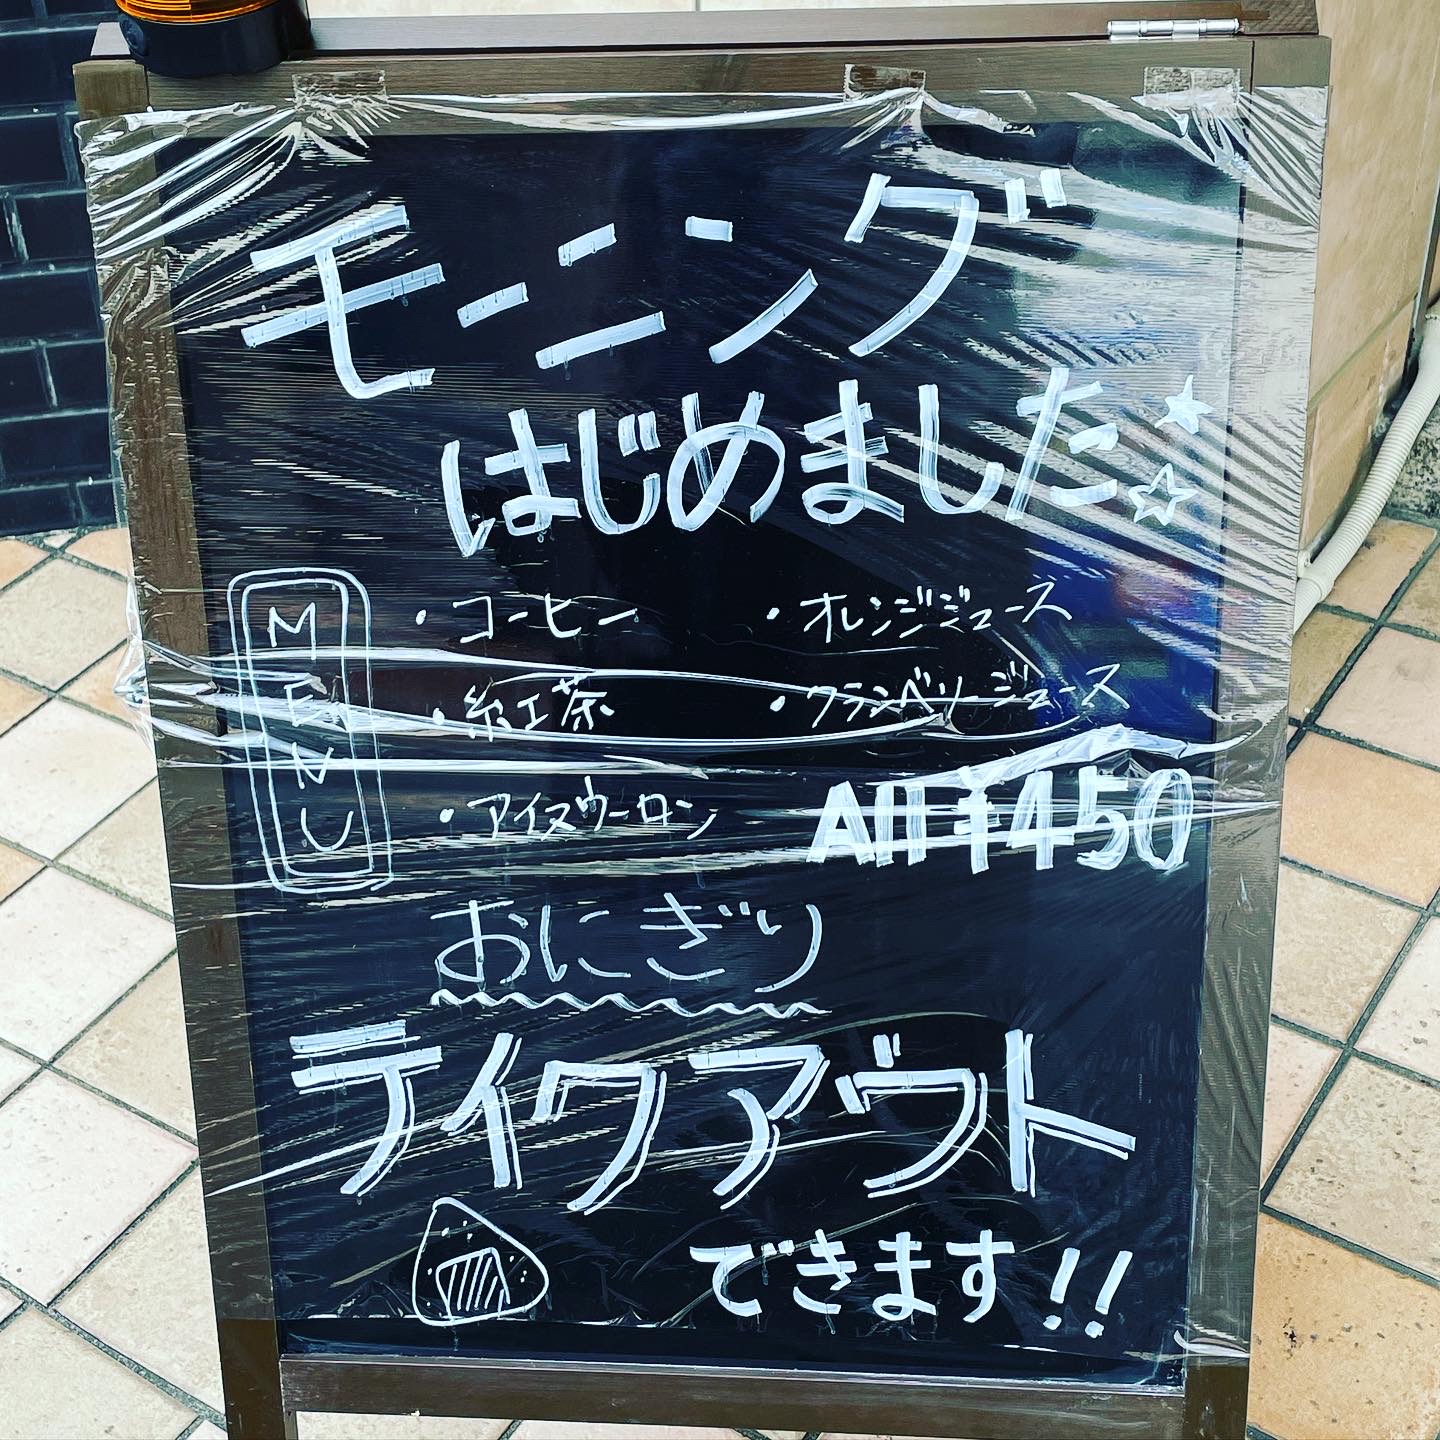 モーニング
はじめました
MENU
・コーヒー ・オレンジジュース
・紅茶 ・クランベリージュース
・アイスウーロン All ¥450
おにぎり
テイクアウト
できます!!